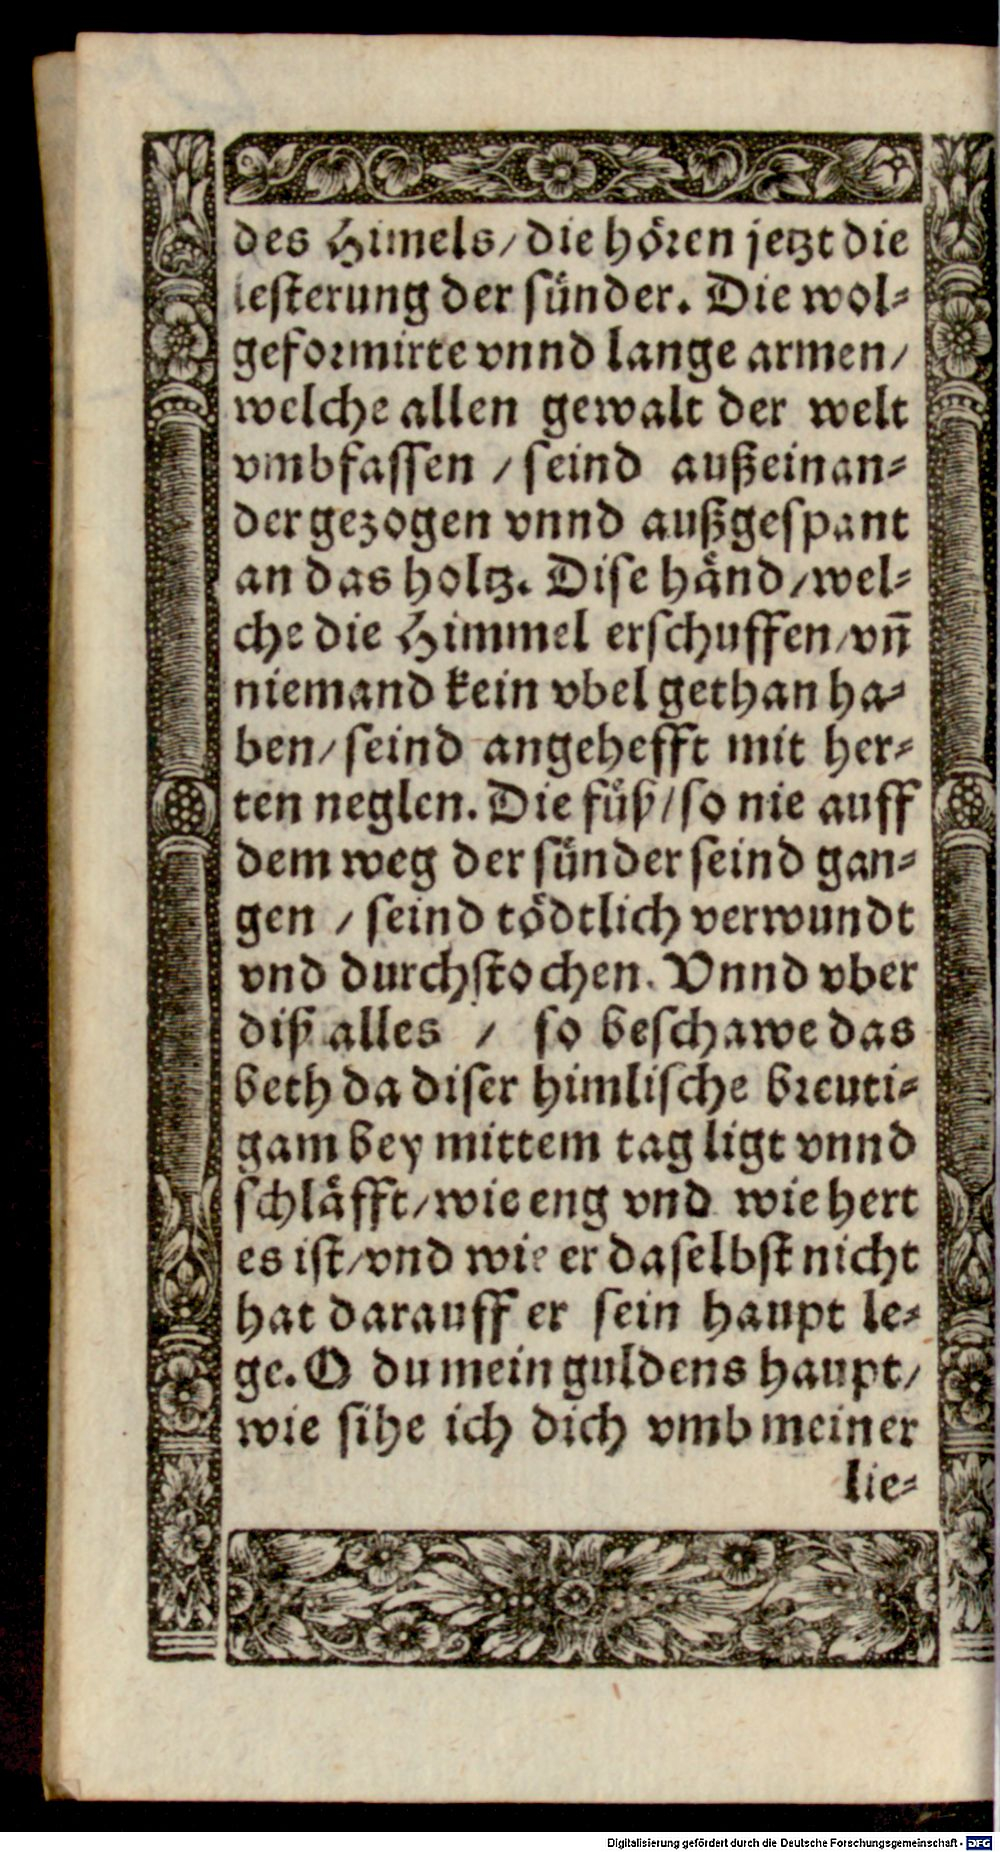 des Himels/ die hören jetzt die
lesterung der sünder. Die wol-
geformirte vnnd lange armen/
welche allen gewalt der welt
vmbfassen / seind außeinan-
der gezogen vnnd außgespant
an das holtz. Dise händ/ wel-
che die Himmel erschuffen/ vñ
niemand kein vbel gethan ha-
ben/ seind angehefft mit her-
ten neglen. Die füß/ so nie auff
dem weg der sünder seind gan-
gen / seind tödtlich verwundt
vnd durchstochen. Vnnd vber
diß alles / so beschawe das
beth da diser himlische breuti-
gam bey mittem tag ligt vnnd
schläfft/ wie eng vnd wie hert
es ist/ vnd wie er daselbst nicht
hat darauff er sein haupt le-
ge. O du mein guldens haupt/
wie sihe ich dich vmb meiner
lie-
Digitalisierung gefördert durch die Deutsche Forschungsgemeinschaft - DFG